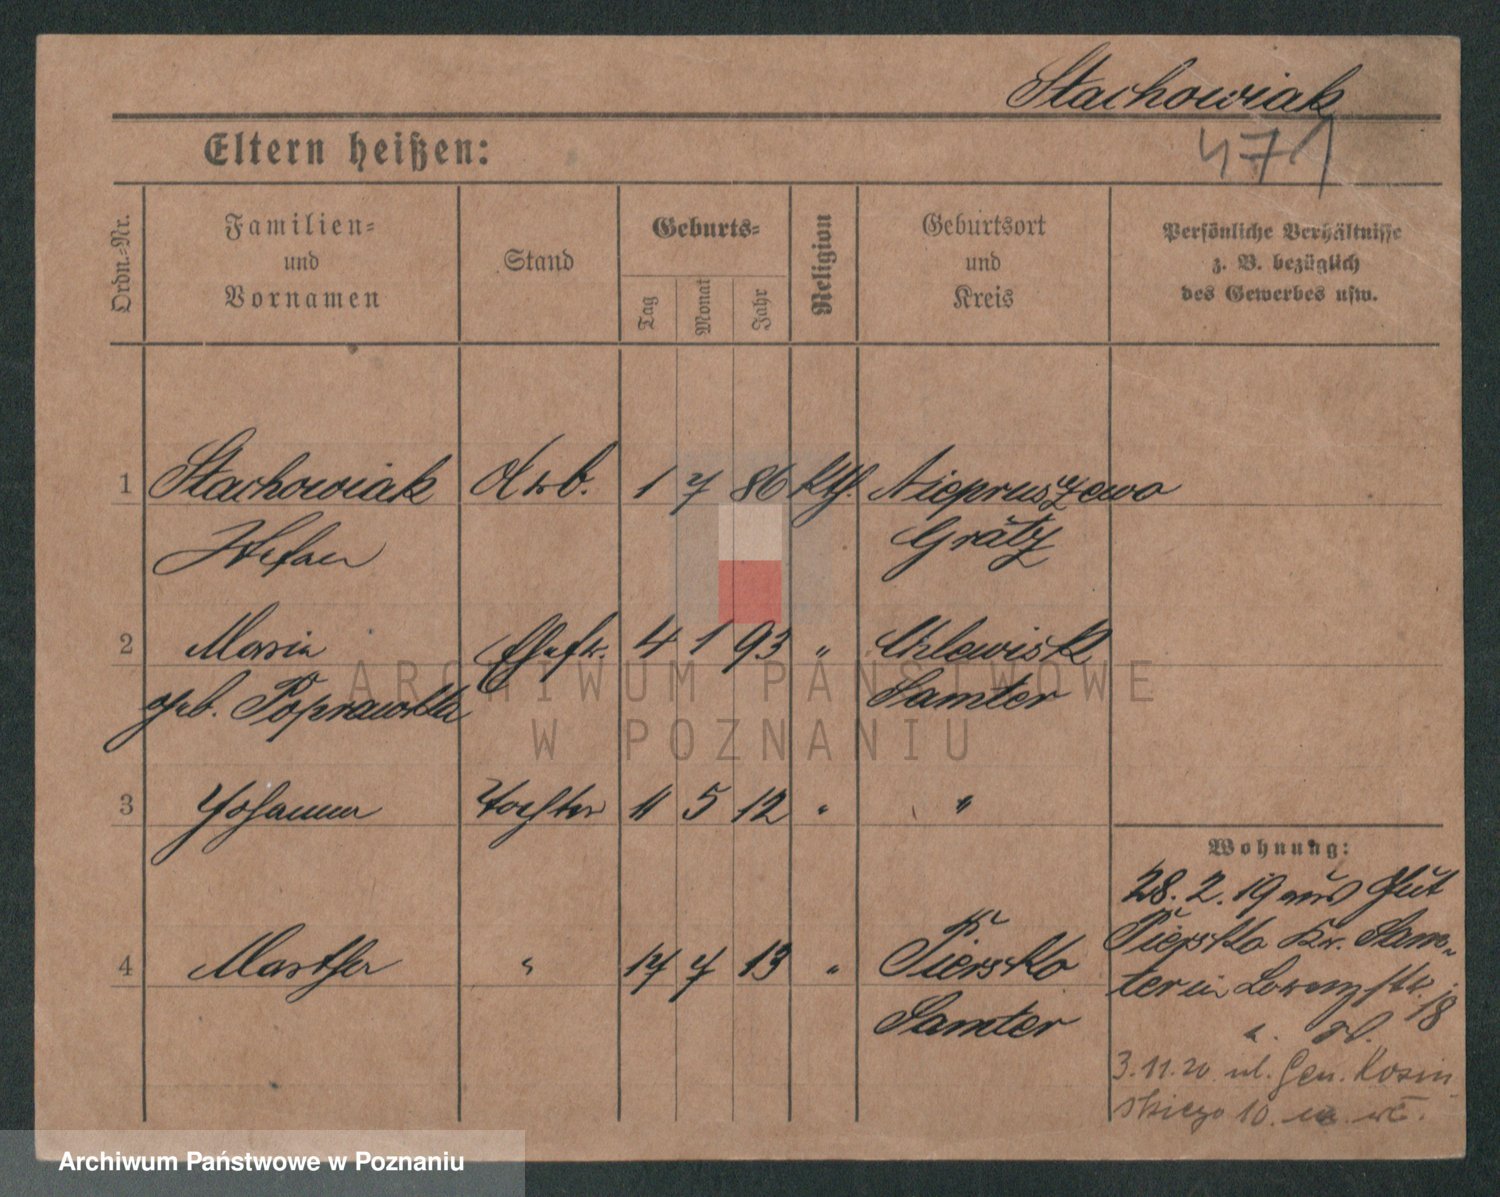 Stachowiak
471
Eltern heißen:
Ordn.-Nr.
Familien-
und
Vornamen
Stand
Geburts-
Tag
Monat
Jahr
Religion
Geburtsort
und
Kreis
Persönliche Verhältnisse
z. B. bezüglich
des Gewerbes usw.
1 Stachowiak Arb. 1 7 86 Kth. Niepruszewo
Stefan Grätz
2 Maria Ehefr. 4 1 93 "
geb. Poprawska Samter
3 Johanna Tochter 11 5 12 " "
Wohnung:
28. 2. 19 aus Gut
Piersko Kr. Sam-
ter in Lorenzstr.
18
4 Martha " 17 7 13 " Piersko
Samter
3.11.20 ul. Gen. Kosin
skiego 10.
ARCHIWUM PAŃSTWOWE
W POZNANIU
Archiwum Państwowe w Poznaniu